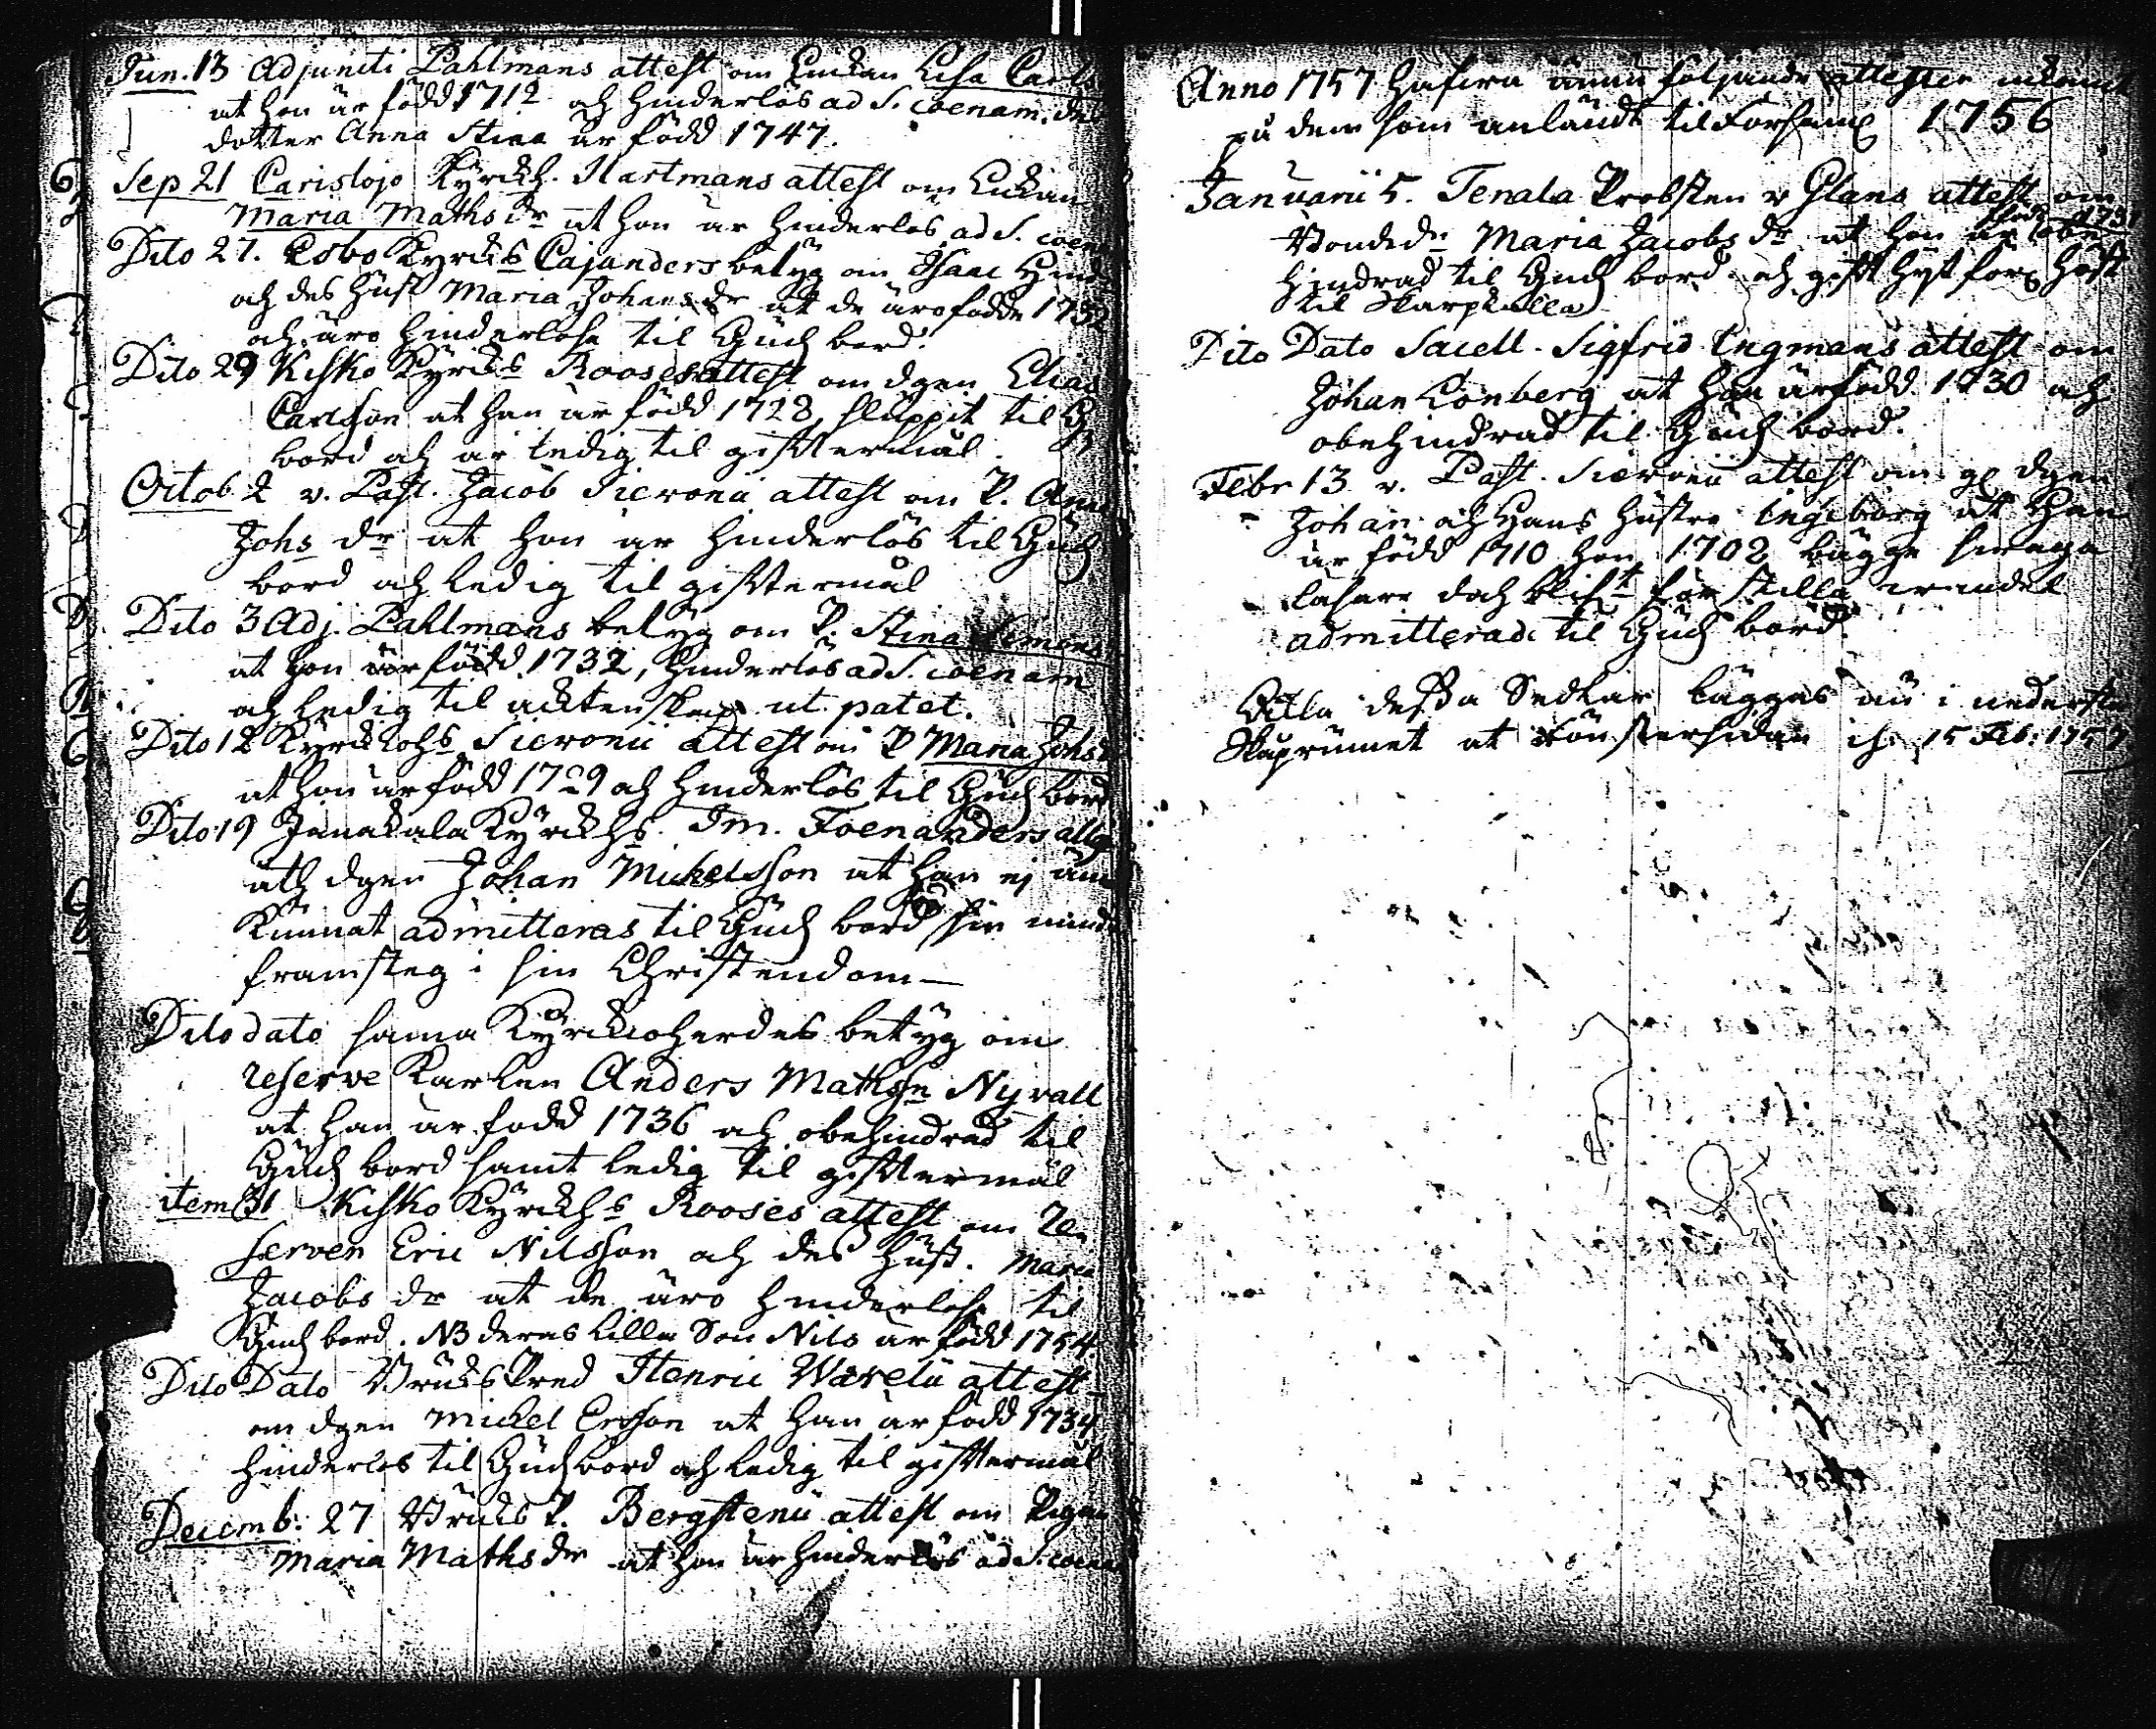 Jun. 13 Adjuncti Pahlmans attest om Enckan Lisa Carls
at hon är född 1712 och hinderlös ad S. coenam. des
dotter Anna Stina är född 1747.
Sep 21 Carislojo Kyrckh. Hartmans attest om Enckian
Maria Maths dr at hon är hinderlös ad S. coen
Dito 27. Esbo Kyrckhs Cajanders betyg om Isaac Hind
och des hust Maria Johans dr at de äro födde 1732
och äro hinderlöse til Gudz bord.
Dito 29 Kisko Kyrckhs Rooses attest om dgen Elias
Carlsson at han är född 1728, sluppit til G
bord och är ledig til gifftermål.
Octob 2 v. Past. Jacob Sieronii attest om P. Anna
Johs dr at hon är hinderlös til Gudz
bord och ledig til gifftermål
Dito 3 Adj. Pahlmans betyg om P. Stina Simons
at hon är född 1732, hinderlös ad S. coenam
och ledig til ächtenskap ut patet.
Dito 12 Kyrckiohs Sieronii attest om P Maria Johs d
at hon är född 1729 och hinderlös til Gudz bord
Dito 19 Janakala Kyrckhs. Im. Foenanders atte
dgen Johan Michelsson at han ej än
kunnat admitteras til Gudz bord för mindre
framsteg i sin Christendom
Dito dato sama Kyrckioherdes betyg om
reserve Karlen Anders Mathsn Nyvall
at han är född 1736 och obehindrad til
Gudz bord samt ledig til gifftermål
item 31 Kisko Kyrckhs Rooses attest om Re
serven Eric Nilsson och des hust. Maria
Jacobs dr at de äro hinderlöse til
Gudz bord. NB deras lilla Son Nils är född 1754.
Dito Dato Bruks Pred Henric Warelii attest
om dgen Michel Ersson at han är född 1734
hinderlös til Gudz bord och ledig til gifftermål
Decemb: 27 Bruks P. Bergstenii attest om Pigan
Maria Maths dr at hon är hinderlös ad S. coena
Anno 1757 hafwa ännu följande attester inkomit
på dem som anländt til Församl 1756
Januarii 5. Tenala Probsten v Glans attest om
Bonde dr Maria Jacobs dr at hon är född 1731 obe
hindrad til Gudz bord och gifft
til Skarpkulla
Dito Dato Sacell. Sigfrid Engmans attest om
Johan Lönberg at han är född 1730 och
obehindrad til Gudz bord.
Febr 13 v. Past. Sieronii attest om gl dgen
Johan och Hans hustru Ingeborg at Han
är född 1710 hon 1702 bägge swaga
läsare doch för stilla wandel
admitterade til Gudz bord.
Alla dessa Sedlar läggas nu i nedersta
Skåprumet at Fönstersidan 15 Feb: 1757